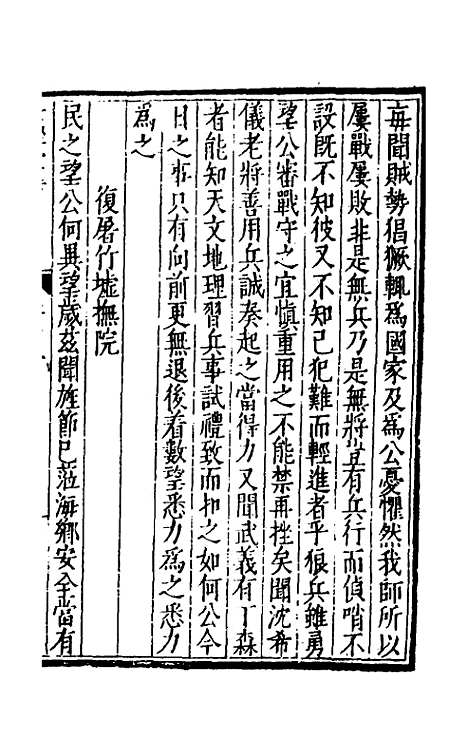 每聞賊勢倡獗輒為國家及為公憂懼然我師所以
屢戰屢敗非是無兵乃是無將豈有兵行而偵哨不
設既不知彼又不知己犯難而輕進者乎狼兵雖勇
望公審戰守之宜慎重用之不能禁再挫矣聞沈希
儀老將善用兵誠奏起之當得力又聞武義有丁森
者能知天文地理習兵事試禮致而扣之如何公今
日之事只有向前更無退後着數望悉力為之悉力
為之
復屠竹墟撫院
民之望公何異望歲茲聞旌節已蒞海鄉安全當有